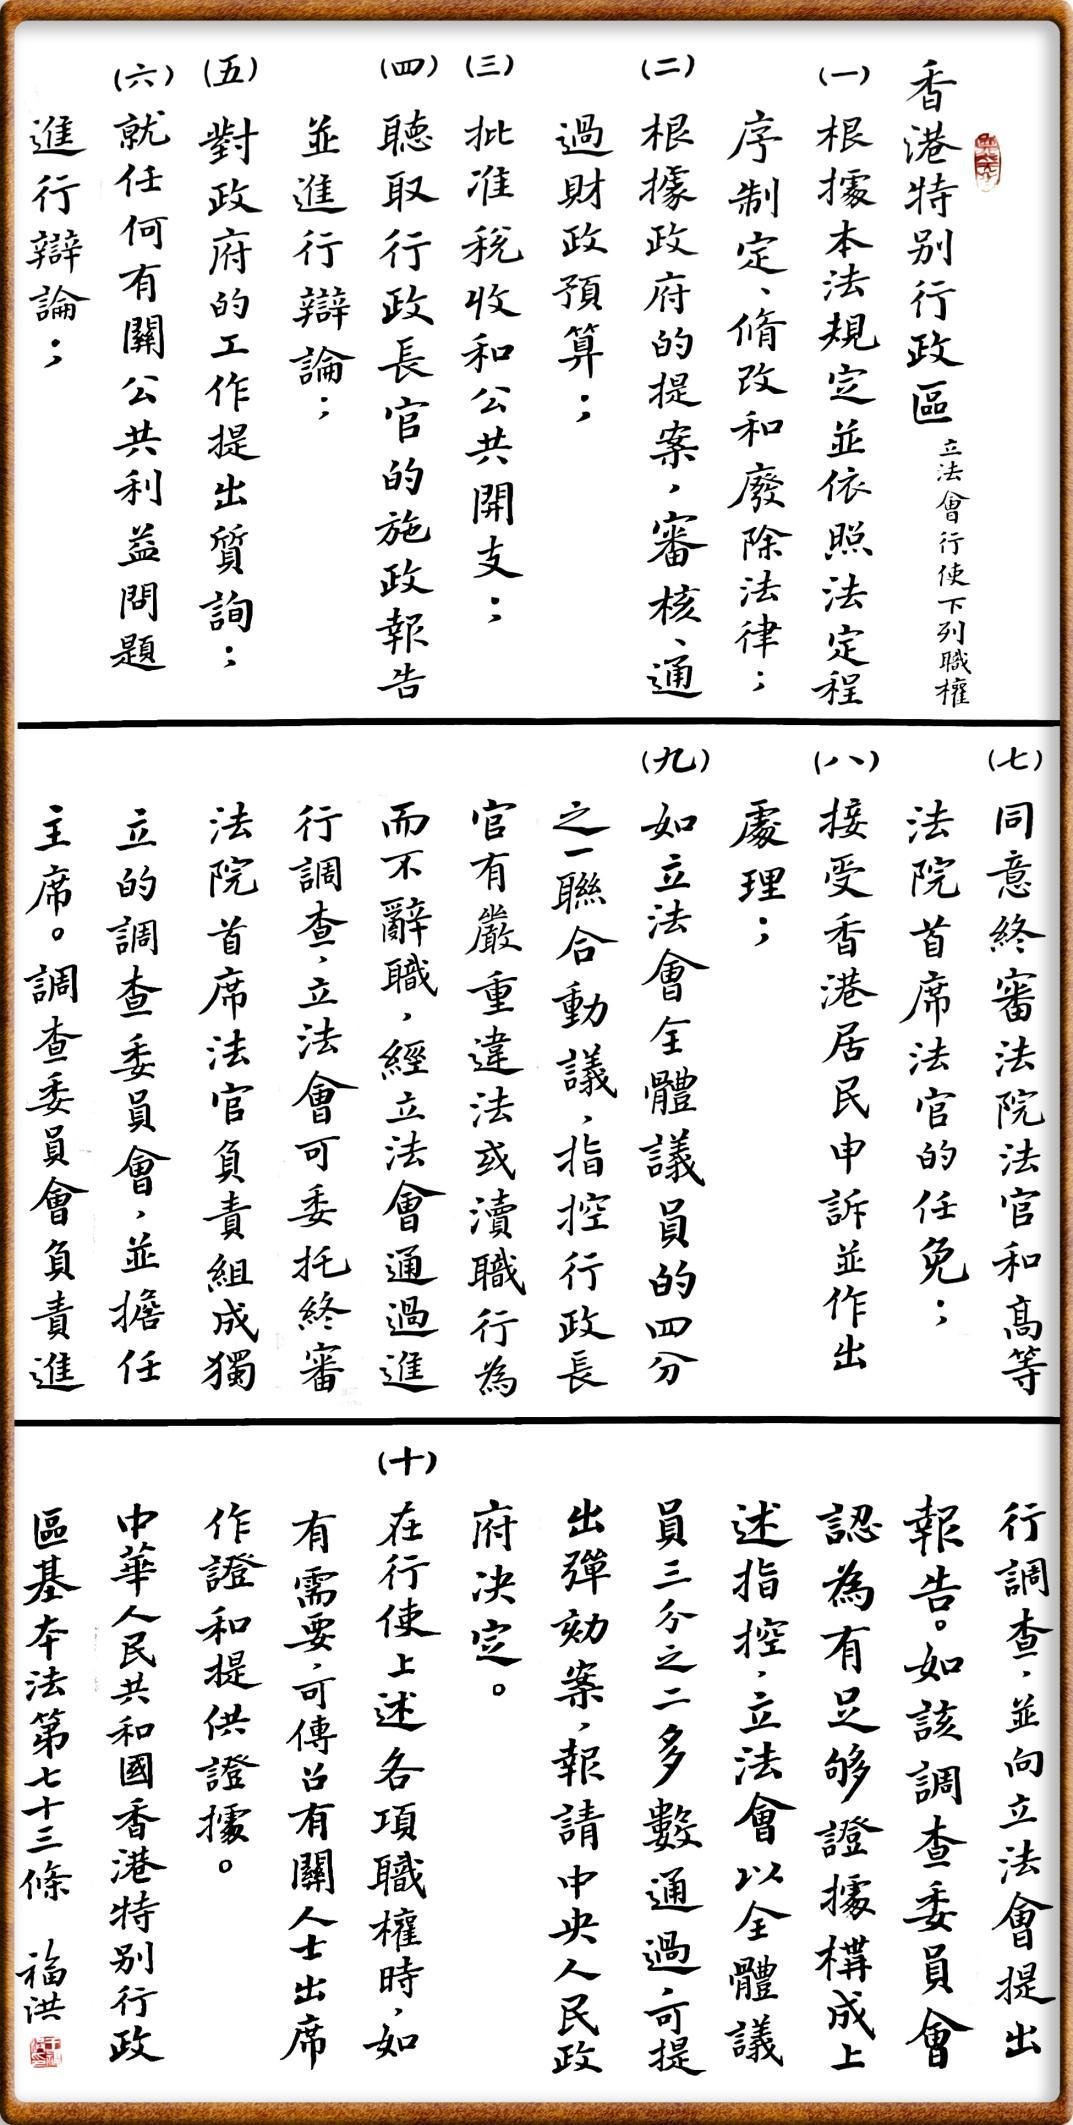 香港特别行政區
立法會行使下列職權
(一)根據本法規定並依照法定程
序制定、脩改和廢除法律；
(二)根據政府的提案，審核、通
過財政預算；
(三)批准稅收和公共開支；
(四)聽取行政長官的施政報告
並進行辯論；
(五)對政府的工作提出質詢；
(六)就任何有關公共利益問題
進行辯論；
(七)同意終審法院法官和高等
法院首席法官的任免；
(八)接受香港居民申訴並作出
處理；
(九)如立法會全體議員的四分
之一聯合動議，指控行政長
官有嚴重違法或瀆職行為
而不辭職，經立法會通過進
行調查，立法會可委托終審
法院首席法官負責組成獨
立的調查委員會，並擔任
主席。調查委員會負責進
行調查，並向立法會提出
報告。如該調查委員會
認為有足够證據構成上
述指控，立法會以全體議
員三分之二多數通過，可提
出彈劾案，報請中央人民政
府決定。
(十)在行使上述各項職權時，如
有需要，可傳召有關人士出席
作證和提供證據。
中華人民共和國香港特别行政
區基本法第七十三條 福洪